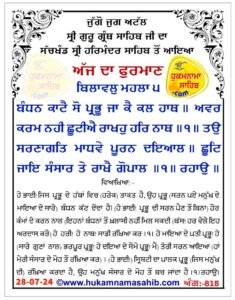 ਜੁੱਗੋ ਜੁਗ ਅਟੱਲ
ਸ੍ਰੀ ਗੁਰੂ ਗ੍ਰੰਥ ਸਾਹਿਬ ਜੀ ਦਾ
ਸੱਚਖੰਡ ਸ੍ਰੀ ਹਰਿਮੰਦਰ ਸਾਹਿਬ ਤੋਂ ਆਇਆ
ਅੱਜ ਦਾ ਫੁਰਮਾਣ
ਹੁਕਮਨਾਮਾ
ਸਾਹਿਬ
.Com
ਬਿਲਾਵਲੁ ਮਹਲਾ ੫
ਬੰਧਨ ਕਾਟੈ ਸੋ ਪ੍ਰਭੂ ਜਾ ਕੈ ਕਲ ਹਾਥ ॥ ਅਵਰ
ਕਰਮ ਨਹੀ ਛੂਟੀਐ ਰਾਖਹੁ ਹਰਿ ਨਾਥ ॥੧॥ ਤਉ
ਸਰਣਾਗਤਿ ਮਾਧਵੇ ਪੂਰਨ ਦਇਆਲ ॥ ਛੂਟਿ
ਜਾਇ ਸੰਸਾਰ ਤੇ ਰਾਖੈ ਗੋਪਾਲ ॥੧॥ ਰਹਾਉ ॥
ਵਿਆਖਿਆ:-
ਹੇ ਭਾਈ! ਜਿਸ ਪ੍ਰਭੂ ਦੇ ਹੱਥਾਂ ਵਿਚ (ਹਰੇਕ) ਤਾਕਤ ਹੈ, ਉਹ ਪ੍ਰਭੂ (ਸਰਨ ਪਏ ਮਨੁੱਖ ਦੇ
ਮਾਇਆ ਦੇ ਸਾਰੇ) ਬੰਧਨ ਕੱਟ ਦੇਂਦਾ ਹੈ। (ਹੇ ਭਾਈ! ਪ੍ਰਭੂ ਦੀ ਸਰਨ ਪੈਣ ਤੋਂ ਬਿਨਾ) ਹੋਰ
ਕੰਮਾਂ ਦੇ ਕਰਨ ਨਾਲ (ਇਹਨਾਂ ਬੰਧਨਾਂ ਤੋਂ) ਖ਼ਲਾਸੀ ਨਹੀਂ ਮਿਲ ਸਕਦੀ (ਬੱਸ! ਹਰ ਵੇਲੇ ਇਹ
ਅਰਦਾਸ ਕਰੋ—) ਹੇ ਹਰੀ! ਹੇ ਨਾਥ! ਸਾਡੀ ਰੱਖਿਆ ਕਰ ॥੧॥ ਹੇ ਮਾਇਆ ਦੇ ਪਤੀ ਪ੍ਰਭੂ! ਹੇ
(ਸਾਰੇ ਗੁਣਾਂ ਨਾਲ) ਭਰਪੂਰ ਪ੍ਰਭੂ! ਹੇ ਦਇਆ ਦੇ ਸੋਮੇ ਪ੍ਰਭੂ! (ਮੈਂ) ਤੇਰੀ ਸਰਨ ਆਇਆ (ਹਾਂ
ਮੇਰੀ ਸੰਸਾਰ ਦੇ ਮੋਹ ਤੋਂ ਰੱਖਿਆ ਕਰ)। (ਹੇ ਭਾਈ!) ਸ੍ਰਿਸ਼ਟੀ ਦਾ ਪਾਲਕ ਪ੍ਰਭੂ (ਜਿਸ ਮਨੁੱਖ
ਦੀ) ਰੱਖਿਆ ਕਰਦਾ ਹੈ, ਉਹ ਮਨੁੱਖ ਸੰਸਾਰ ਦੇ ਮੋਹ ਤੋਂ ਬਚ ਜਾਂਦਾ ਹੈ ॥੧॥ ਰਹਾਉ॥
28-07-24
www.hukamnamasahib.com
ਅੰਗ:-818